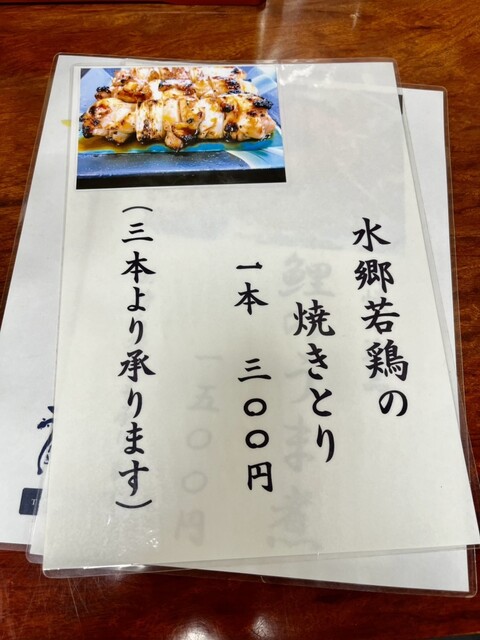 水郷若鶏の
焼きとり
一本　三〇〇円
（三本より承ります）